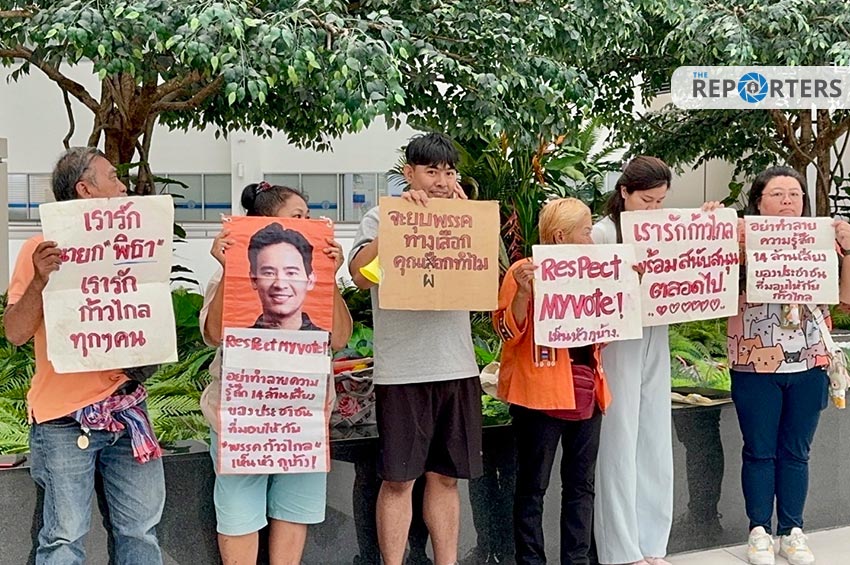 THE
REPORTERS
เรารัก
นายก "พิธา"
เรารัก
ก้าวไกล
ทุกๆคน
Respect MyVote!
อย่าทำลายความ
รู้สึก 14 ล้านเสียง
ของประชาชน
ที่มอบให้กับ
"พรรคก้าวไกล"
เห็นหัว กูบ้าง!
จะยุบพรรค
ทางเลือก
คุณเลือกทำไม
ResPect
MYVote!
เห็นหัวกูบ้าง.
เรารักก้าวไกล
พร้อมสนับสนุน
ตลอดไป.
อย่าทำลาย
ความรู้สึก
14 ล้านเสียง
ของประชาชน
ที่มอบให้
ก้าวไกล